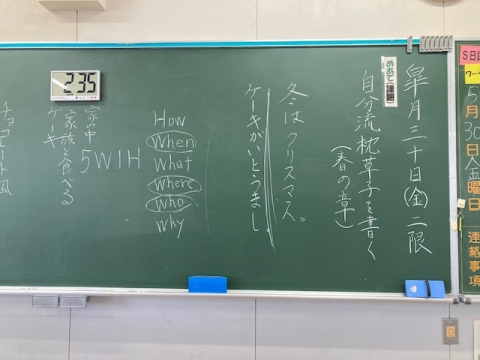 皐月三十日(金)二限
めあて(課題)
自分流枕草子を書く
(春の章)
冬はクリスマス。
ケーキがいとうまし。
How
When
What
Where
Who
Why
5W1H
家の中
家族と食べる
ケーキ
235
5月30日金曜日
連絡事項